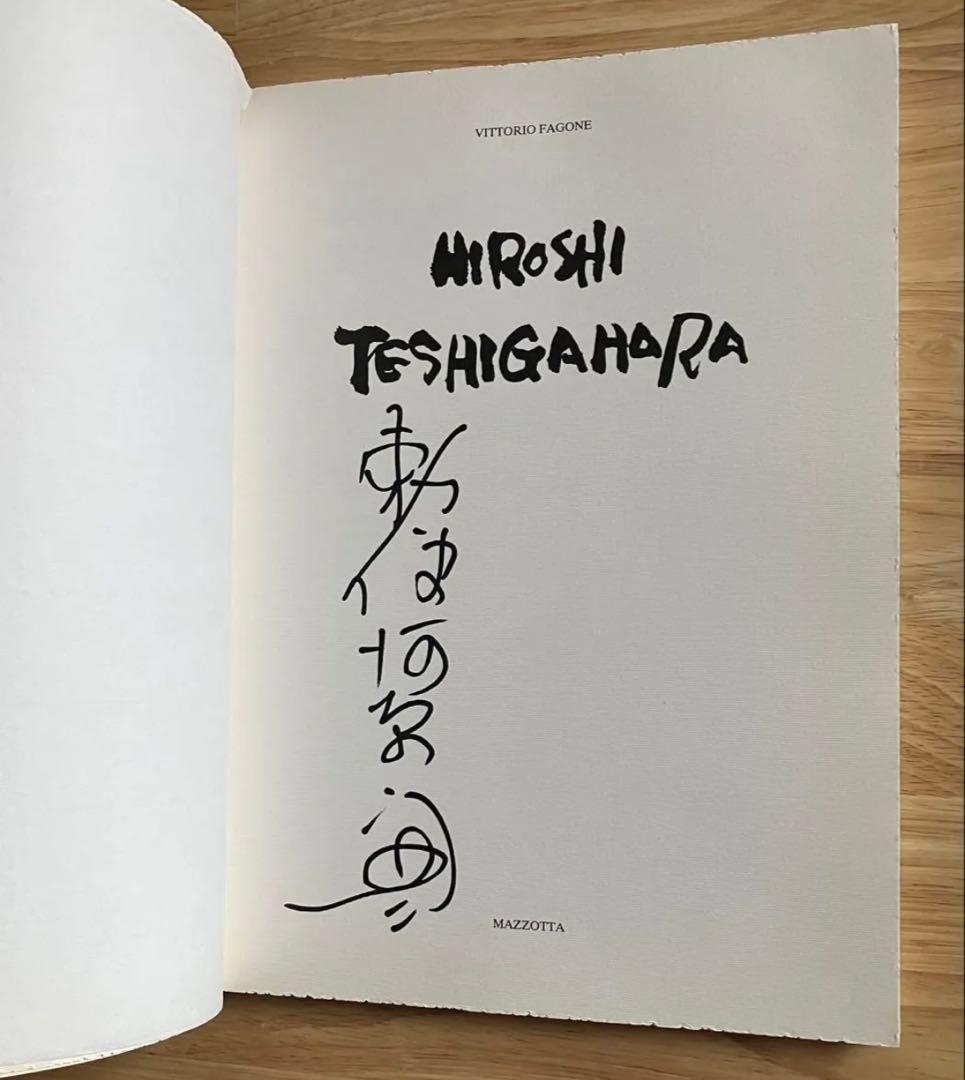 VITTORIO FAGONE
HIROSHI
TESHIGAHARA
勅使河原宏
MAZZOTTA